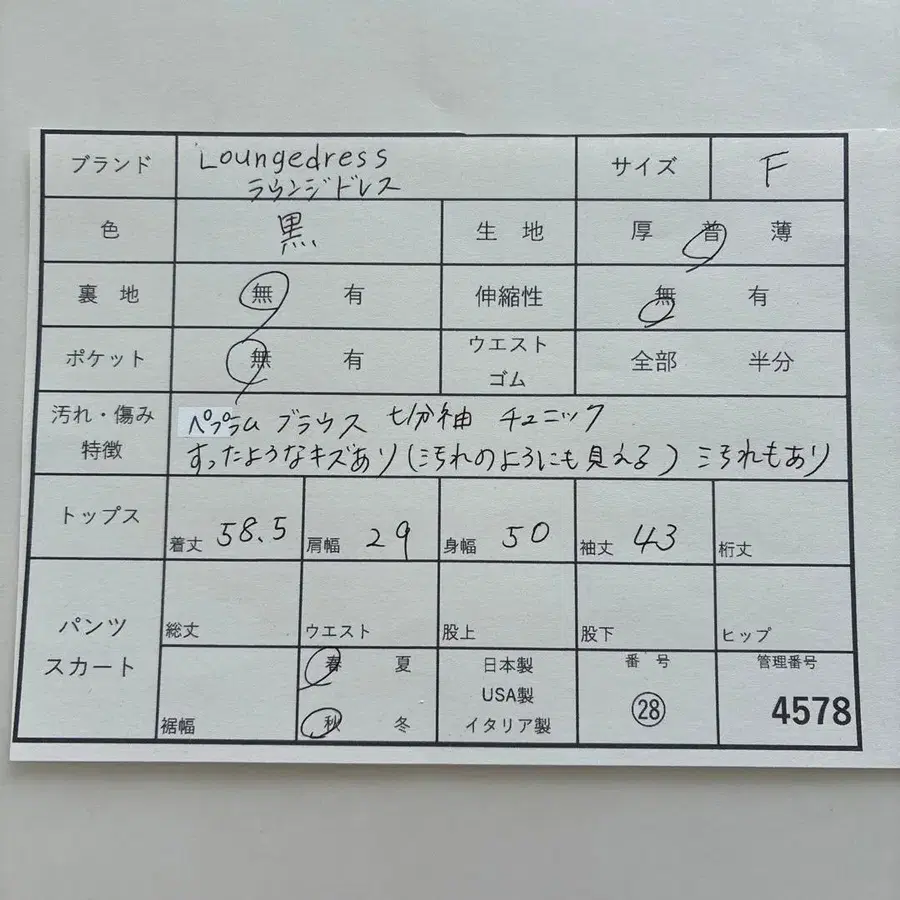 ブランド Loungedress サイズ F
ラウンジドレス
色 黒 生地 厚 普 薄
裏地 無 有 伸縮性 無 有
ポケット 無 有 ウエスト 全部 半分
ゴム
汚れ・傷み ペプラム ブラウス 七分袖 チュニック
特徴 すったようなキズあり(汚れのようにも見える) 汚れもあり
トップス 着丈 58.5 肩幅 29 身幅 50 袖丈 43 裄丈
パンツ 総丈 ウエスト 股上 股下 ヒップ
スカート 春 夏 日本製 番号 管理番号
USA製 28 4578
裾幅 秋 冬 イタリア製